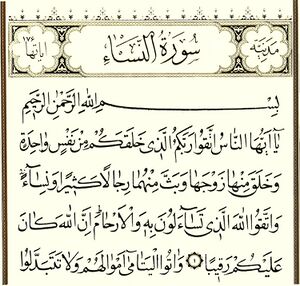 مدنية سورة النساء اياتها ١٧٦
بسم الله الرحمن الرحيم
يا ايها الناس اتقوا ربكم الذي خلقكم من نفس واحدة
وخلق منها زوجها وبث منهما رجالا كثيرا ونساء
واتقوا الله الذي تساءلون به والارحام ان الله كان
عليكم رقيبا ۝ واتوا اليتامى اموالهم ولا تتبدلوا